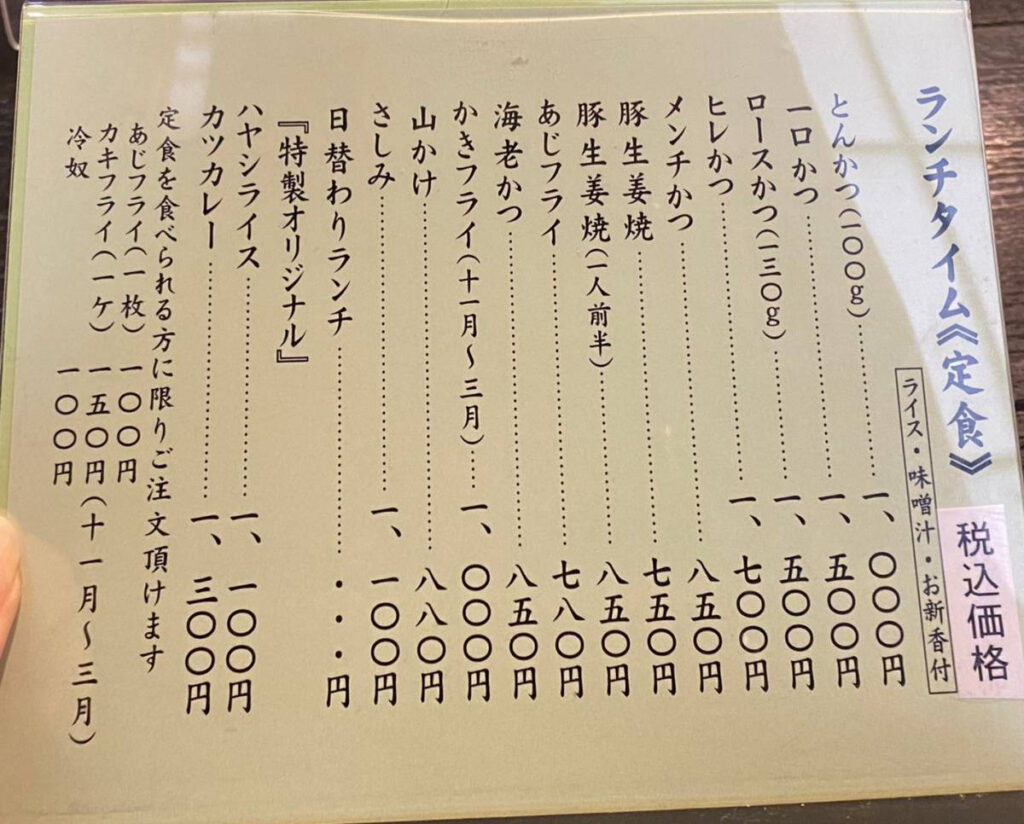 ランチタイム《定食》
税込価格
ライス・味噌汁・お新香付
とんかつ(一〇〇g)……一、〇〇〇円
一口かつ……一、五〇〇円
ロースかつ(一三〇g)……一、五〇〇円
ヒレかつ……一、七〇〇円
メンチかつ……八五〇円
豚生姜焼……七五〇円
豚生姜焼(一人前半)……八五〇円
あじフライ……七八〇円
海老かつ……八五〇円
かきフライ(十一月～三月)……一、〇〇〇円
山かけ……八八〇円
さしみ……一、一〇〇円
日替わりランチ……・・・円
『特製オリジナル』
ハヤシライス……一、一〇〇円
カツカレー……一、三〇〇円
定食を食べられる方に限りご注文頂けます
あじフライ(一枚) 一〇〇円
カキフライ(一ケ) 一五〇円(十一月～三月)
冷奴 一〇〇円